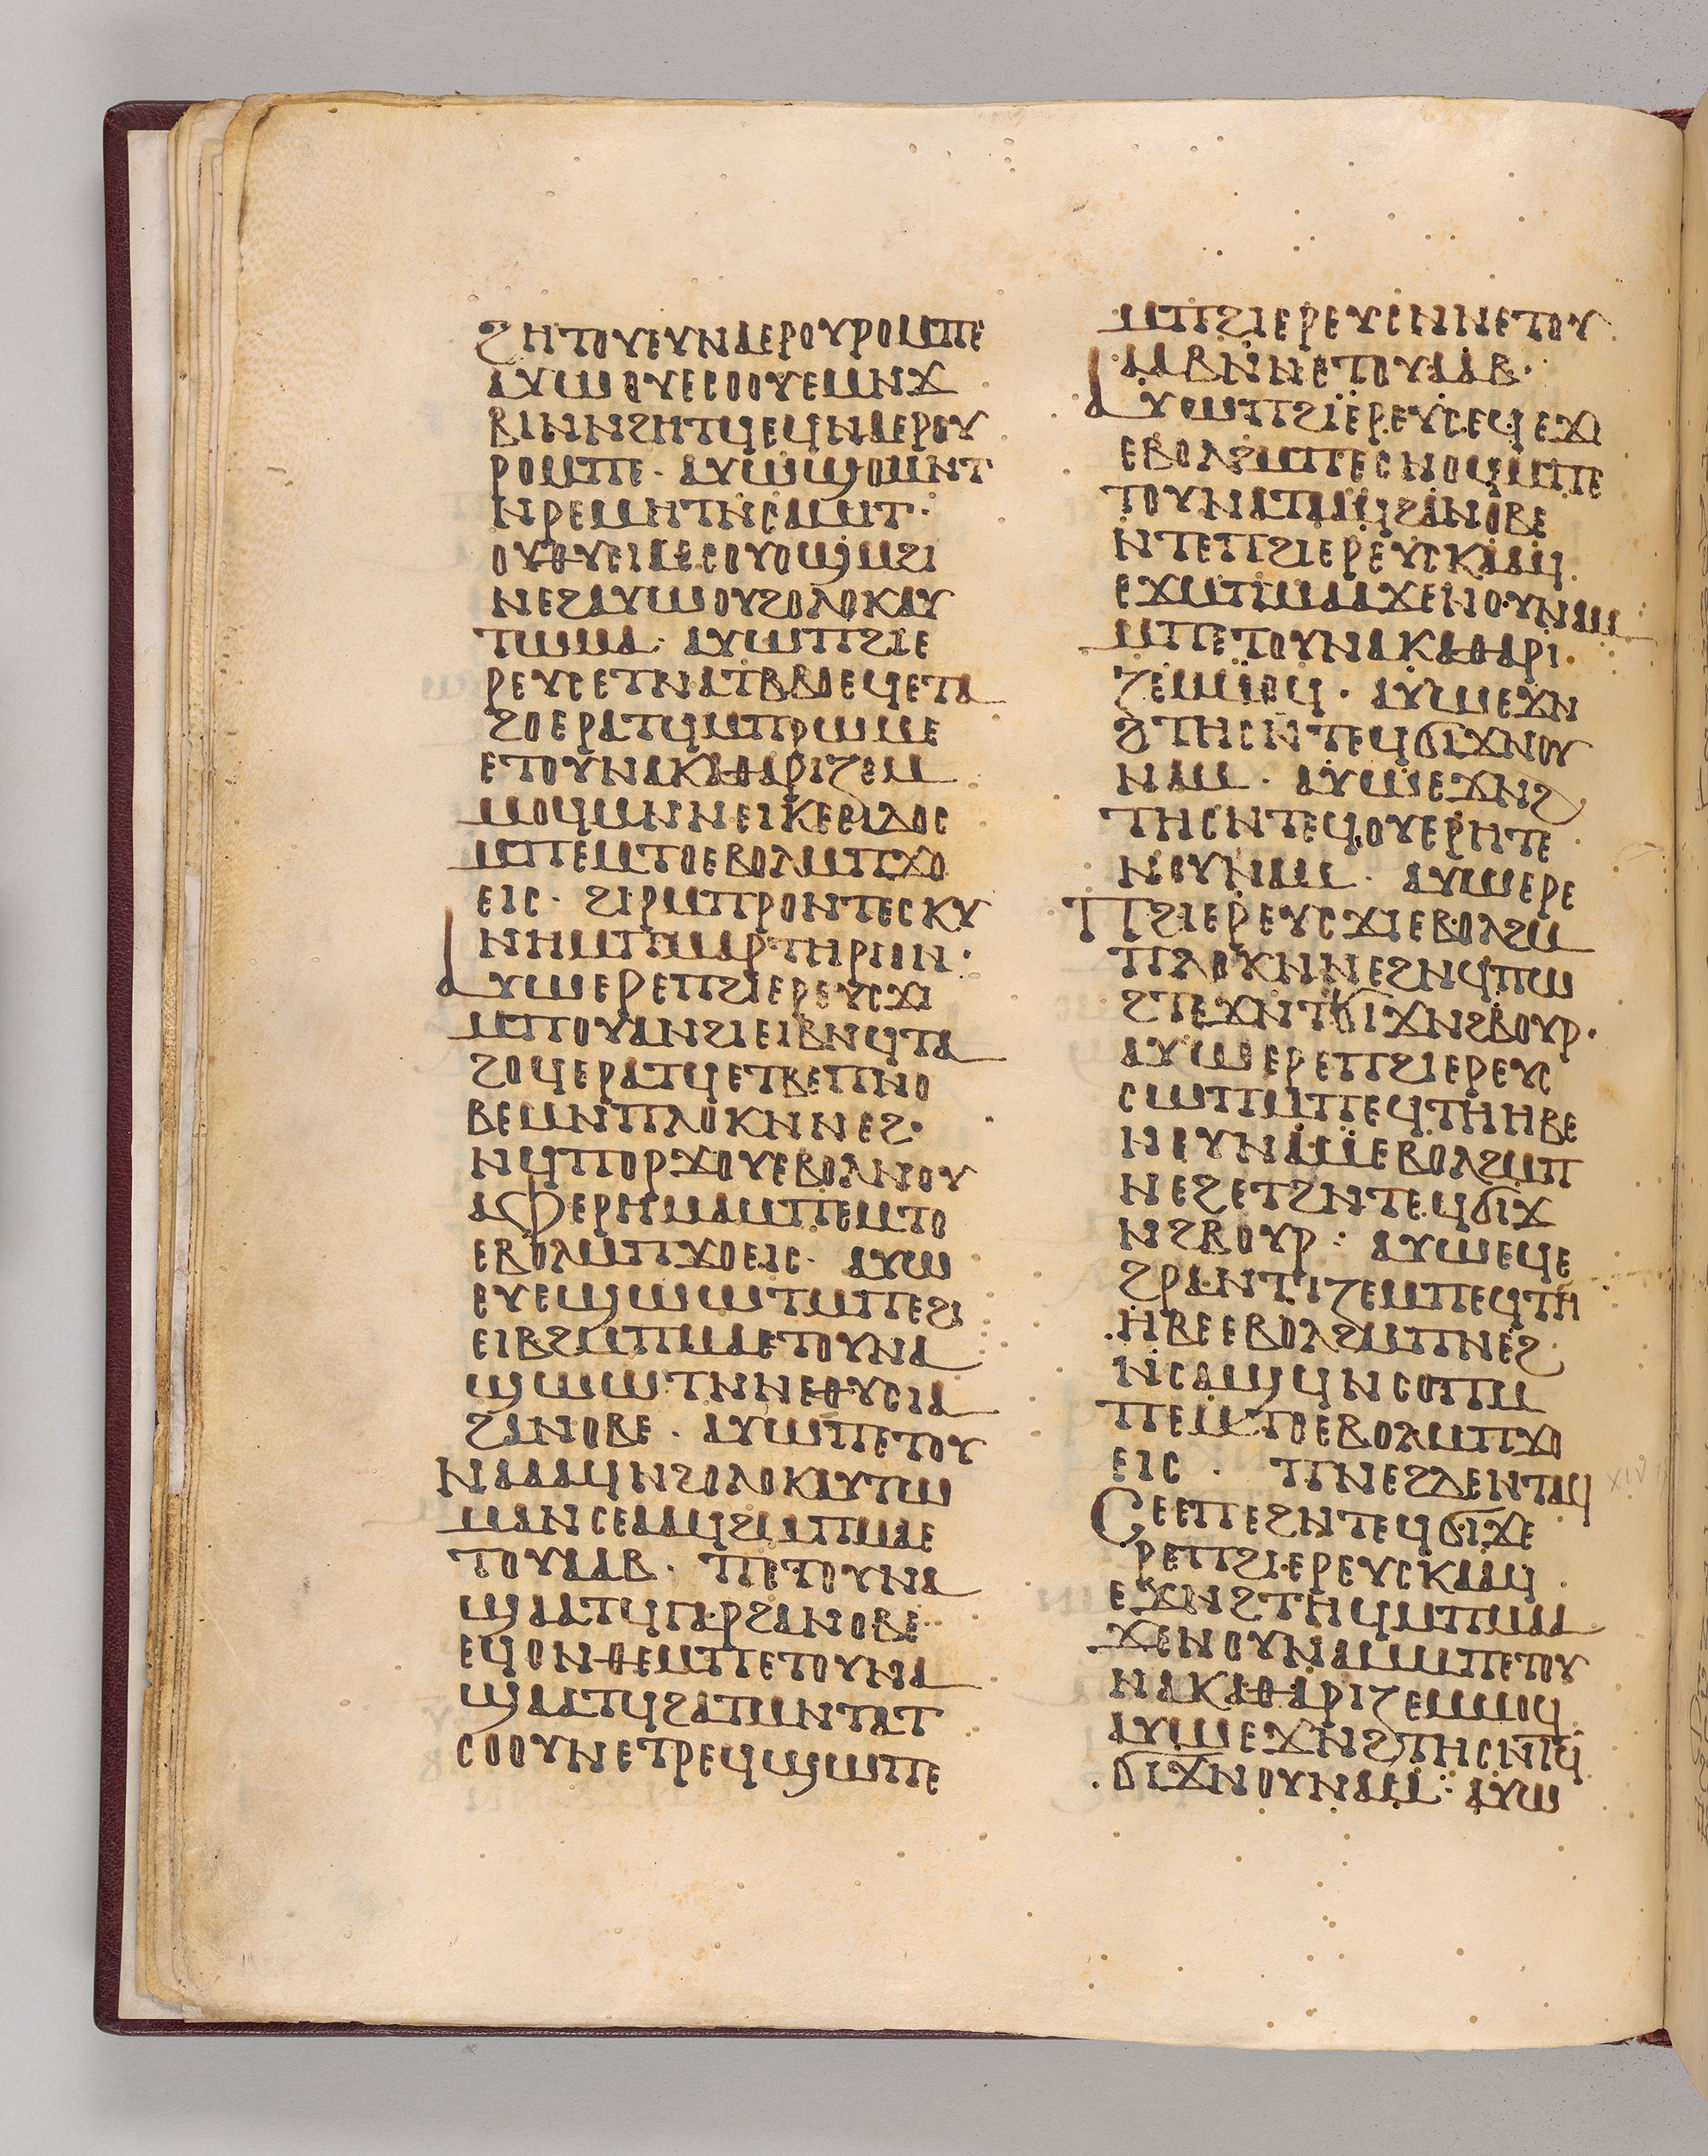 ϩⲏⲧⲟⲩⲉⲩⲛⲁⲉⲣⲟⲩⲣⲟⲙⲡⲉ
ⲁⲩⲱⲟⲩⲉⲥⲟⲟⲩⲉⲙⲛϫ
ⲃⲓⲛⲛϩⲏⲧϥⲉϥⲛⲁⲉⲣⲟⲩ
ⲣⲟⲙⲡⲉ· ⲁⲩⲱϣⲟⲙⲛⲧ
ⲛⲣⲉⲙⲏⲧⲛⲥⲁⲙⲓⲧ·
ⲟⲩⲑⲩⲥⲓⲁⲉⲥⲟⲩⲟϣⲙϩⲓ
ⲛⲉϩⲁⲩⲱⲟⲩϩⲟⲗⲟⲕⲁⲩ
ⲧⲱⲙⲁ· ⲁⲩⲱⲡϩⲓⲉ
ⲣⲉⲩⲥⲉⲧⲛⲁⲧⲃⲃⲟⲉϥⲉⲧⲁ
ϩⲟⲉⲣⲁⲧϥⲙⲡⲣⲱⲙⲉ
ⲉⲧⲟⲩⲛⲁⲕⲁⲑⲁⲣⲓⲍⲉⲙ
ⲙⲟϥⲙⲛⲛⲉⲓⲕⲉⲉⲓⲇⲟⲥ
ⲙⲡⲉⲙⲧⲟⲉⲃⲟⲗⲙⲡϫⲟ
ⲉⲓⲥ· ϩⲓⲣⲙⲡⲣⲟⲛⲧⲉⲥⲕⲩ
ⲛⲏⲙⲡⲙⲁⲣⲧⲏⲣⲓⲟⲛ·
ⲁⲩⲱⲉⲣⲉⲡϩⲓⲉⲣⲉⲩⲥϫⲓ
ⲙⲡⲟⲩⲁⲛϩⲓⲉⲓⲃⲛϥⲧⲁ
ϩⲟϥⲉⲣⲁⲧϥⲉⲧⲃⲉⲡⲛⲟ
ⲃⲉⲙⲛⲡⲗⲟⲕⲛⲛⲉϩ·
ⲛϥⲡⲟⲣϫⲟⲩⲉⲃⲟⲗⲛⲟⲩ
ⲁⲫⲉⲣⲏⲙⲁⲙⲡⲉⲙⲧⲟ
ⲉⲃⲟⲗⲙⲡϫⲟⲉⲓⲥ· ⲁⲩⲱ
ⲉⲩⲉϣⲱⲱⲧⲙⲡⲉϩⲓ
ⲉⲓⲃϩⲙⲡⲙⲁⲉⲧⲟⲩⲛⲁ
ϣⲱⲱⲧⲛⲛⲉⲑⲩⲥⲓⲁ
ϩⲁⲛⲟⲃⲉ· ⲁⲩⲱⲡⲉⲧⲟⲩ
ⲛⲁⲁⲁϥⲛϩⲟⲗⲟⲕⲁⲩⲧⲱ
ⲙⲁⲛⲥⲉⲁⲁϥϩⲙⲡⲙⲁⲉ
ⲧⲟⲩⲁⲁⲃ· ⲡⲉⲧⲟⲩⲛⲁ
ϣⲁⲁⲧϥⲅⲁⲣϩⲁⲛⲟⲃⲉ
ⲉϥⲟⲛⲑⲉⲙⲡⲉⲧⲟⲩⲛⲁ
ϣⲁⲁⲧϥϩⲁⲧⲙⲛⲧⲁⲧ
ⲥⲟⲟⲩⲛⲉⲧⲣⲉϥϣⲱⲡⲉ
ⲙⲡϩⲓⲉⲣⲉⲩⲥⲛⲛⲉⲧⲟⲩ
ⲁⲁⲃⲛⲛⲉⲧⲟⲩⲁⲁⲃ·
ⲁⲩⲱⲡϩⲓⲉⲣⲉⲩⲥⲉϥⲉϫⲓ
ⲉⲃⲟⲗϩⲙⲡⲉⲥⲛⲟϥⲙⲡⲉ
ⲧⲟⲩⲛⲁⲧⲁⲁϥϩⲁⲛⲟⲃⲉ
ⲛⲧⲉⲡϩⲓⲉⲣⲉⲩⲥⲕⲁⲁϥ
ⲉϫⲙⲡⲙⲁⲁϫⲉⲛⲟⲩⲛⲁⲙ
ⲙⲡⲉⲧⲟⲩⲛⲁⲕⲁⲑⲁⲣⲓ
ⲍⲉⲙⲙⲟϥ· ⲁⲩⲱⲉϫⲛ
ϩⲧⲏⲥⲛⲧⲉϥϭⲓϫⲛⲟⲩ
ⲛⲁⲙ· ⲁⲩⲱⲉϫⲛϩ
ⲧⲏⲥⲛⲧⲉϥⲟⲩⲉⲣⲏⲧⲉ
ⲛⲟⲩⲛⲁⲙ· ⲁⲩⲱⲉⲣⲉ
ⲡϩⲓⲉⲣⲉⲩⲥϫⲓⲉⲃⲟⲗϩⲙ
ⲡⲗⲟⲕⲛⲛⲉϩⲛϥⲡⲱ
ϩⲧⲉϫⲛⲧϭⲓϫⲛϩⲃⲟⲩⲣ·
ⲁⲩⲱⲉⲣⲉⲡϩⲓⲉⲣⲉⲩⲥ
ⲥⲱⲡⲙⲡⲉϥⲧⲏⲏⲃⲉ
ⲛⲟⲩⲛⲁⲙⲉⲃⲟⲗϩⲙⲡ
ⲛⲉϩⲉⲧϩⲛⲧⲉϥϭⲓϫ
ⲛϩⲃⲟⲩⲣ: ⲁⲩⲱⲉϥⲉ
ϩⲣⲁⲛⲧⲓⲍⲉⲙⲡⲉϥⲧⲏ
ⲏⲃⲉⲉⲃⲟⲗϩⲙⲡⲛⲉϩ
ⲛⲥⲁϣϥⲛⲥⲟⲡⲙ
ⲡⲉⲙⲧⲟⲉⲃⲟⲗⲙⲡϫⲟ
ⲉⲓⲥ· ⲡⲛⲉϩⲇⲉⲛⲧⲁϥ
ⲥⲉⲉⲡⲉϩⲛⲧⲉϥϭⲓϫⲉ
ⲣⲉⲡϩⲓⲉⲣⲉⲩⲥⲕⲁⲁϥ
ⲉϫⲛϩⲧⲏϥⲙⲡⲙⲁⲁ
ϫⲉⲛⲟⲩⲛⲁⲙⲙⲡⲉⲧⲟⲩ
ⲛⲁⲕⲁⲑⲁⲣⲓⲍⲉⲙⲙⲟϥ
ⲁⲩⲱⲉϫⲛϩⲧⲏⲥⲛⲧϥ
ϭⲓϫⲛⲟⲩⲛⲁⲙ: ⲁⲩⲱ